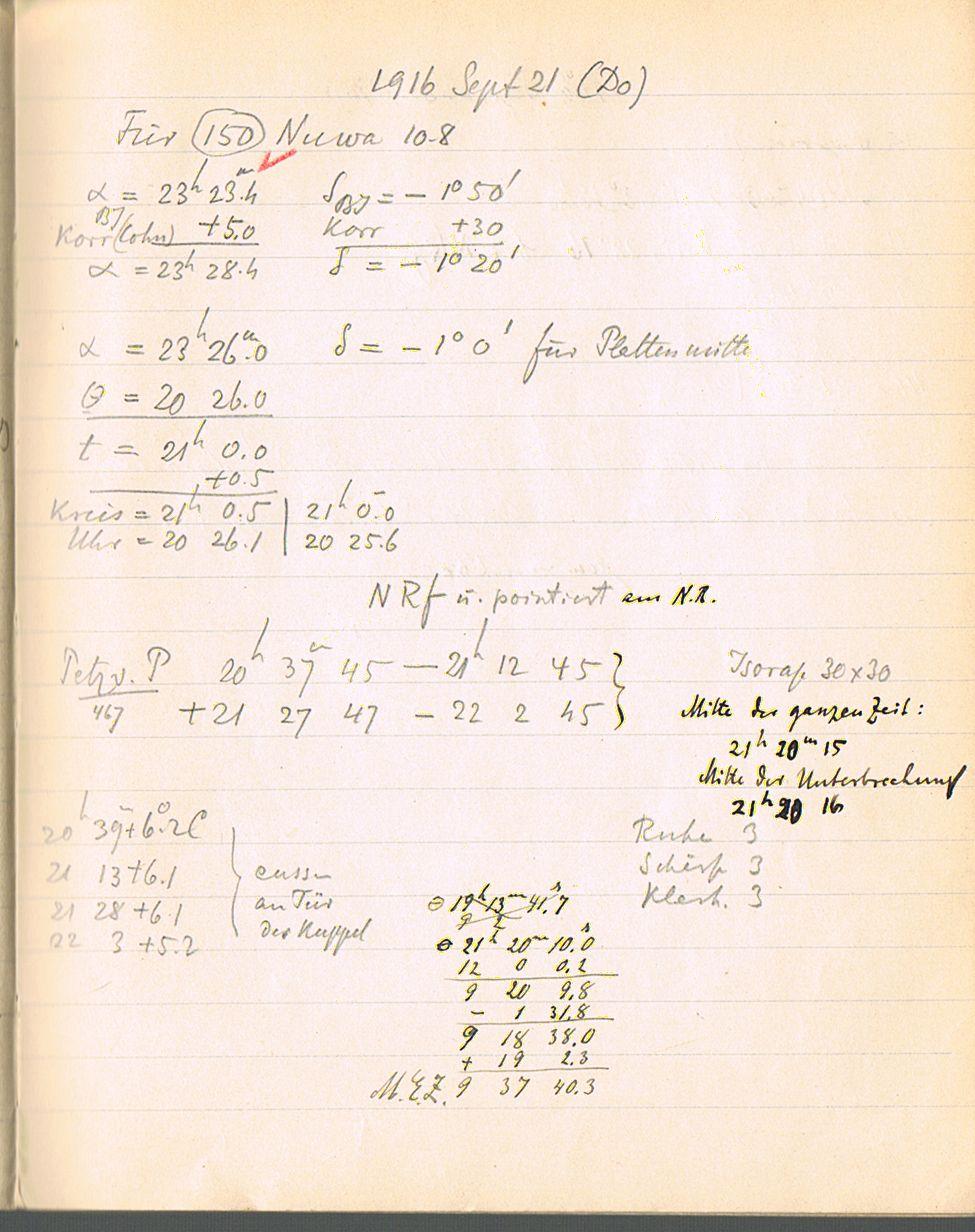 1916 Sept 21 (Do)
Für (150) Nuwa 10.8
α BJ = 23h 23m.4 δBJ = − 1° 50'
Korr (Cohn) +5.0 Korr +30
α = 23h 28.4 δ = − 1° 20'
α = 23h 26m.0 δ = − 1° 0' für Plattenmitte
θ = 20 26.0
t = 21h 0.0
+0.5
Kreis = 21h 0.5 | 21h 0.0
Uhr = 20 26.1 | 20 25.6
NRf u. pointiert am N.R.
Petzv. P 20h 37m 45 — 21h 12 45 } Isorap 30×30
467 +21 27 47 − 22 2 45
Mitte der ganzen Zeit:
21h 20m 15
Mitte der Unterbrechung
21h 20 16
20h 39m +6°.2 C
21 13 +6.1 aussen
21 28 +6.1 an Tür
22 3 +5.2 der Kuppel
Ruhe 3
Schärf. 3
Klarh. 3
θ 19h 13m 41s.7
9 2
θ 21h 20m 10s.0
12 0 0.2
9 20 9.8
− 1 31.8
9 18 38.0
+ 19 2.3
M.E.Z. 9 37 40.3